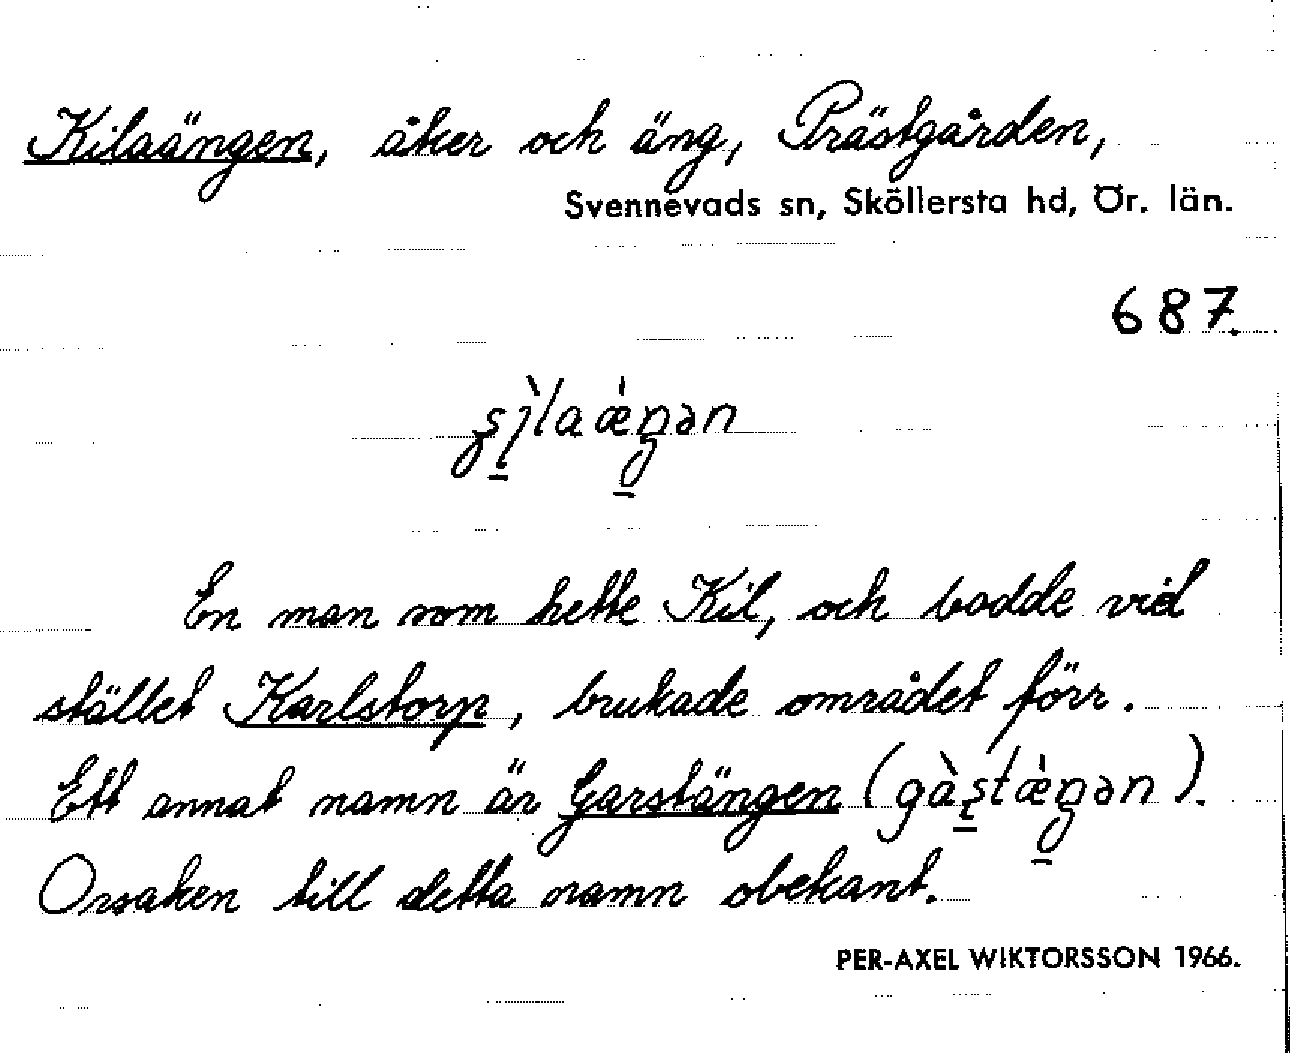 Kilaängen, åker och äng, Prästgården,
Svennevads sn, Sköllersta hd, Ör. län.
687.
En man som hette Kil, och bodde vid
stället Karlstorp, brukade området förr.
Ett annat namn är Garstängen (gàʂtǽŋən).
Orsaken till detta namn obekant.
PER-AXEL WIKTORSSON 1966.